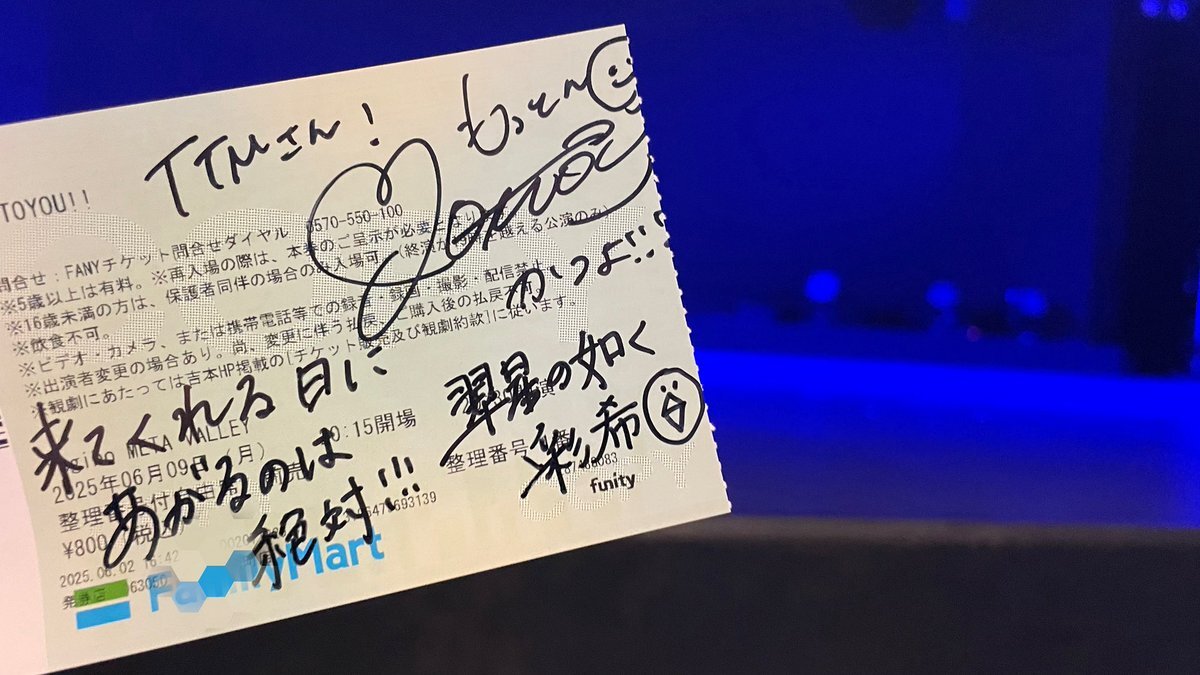 TTMさん!
もっと〜
TOYOU!!
問合せ:FANYチケット問合せダイヤル 0570-550-100
※5歳以上は有料。※再入場の際は、本券のご呈示が必要となり
※16歳未満の方は、保護者同伴の場合のみ入場可 (終演が 時を越える公演のみ)
※飲食不可。
かつよ!!
※ビデオ・カメラ、または携帯電話等での録音・録画・撮影・配信禁止
※出演者変更の場合あり。尚、変更に伴う払戻 ご購入後の払戻不可。
※観劇にあたっては吉本HP掲載の「チケット販売及び観劇約款」に従います。
来てくれる日に
あがるのは
絶対!!!
翠星の如く
彩希
META VALLEY
:15開場
2025年06月09日 (月)
整理番号
整理番号
¥800
funity
2025.06.02 16:42
発券店 063060
FamilyMart
COPY